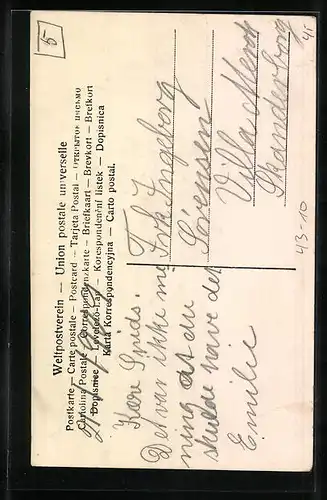 Weltpostverein — Union postale universelle
Postkarte — Carte postale — Postcard — Tarjeta Postal — ОТКРЫТОЕ ПИСЬМО
Cartolina Postale — Correspondenzkarte — Briefkaart — Brevkort — Brefkort
Dopisnice — Levelező-Lap — Korespondenční lístek — Dopisnica
Karta Korrespondencyjna — Carto postal.
Kære Snids.
Det var ikke me
ning at du
skulde have det
Emilie
Frk. Ingeborg
Sörensen
Villa
Skanderborg
43-10
45
5